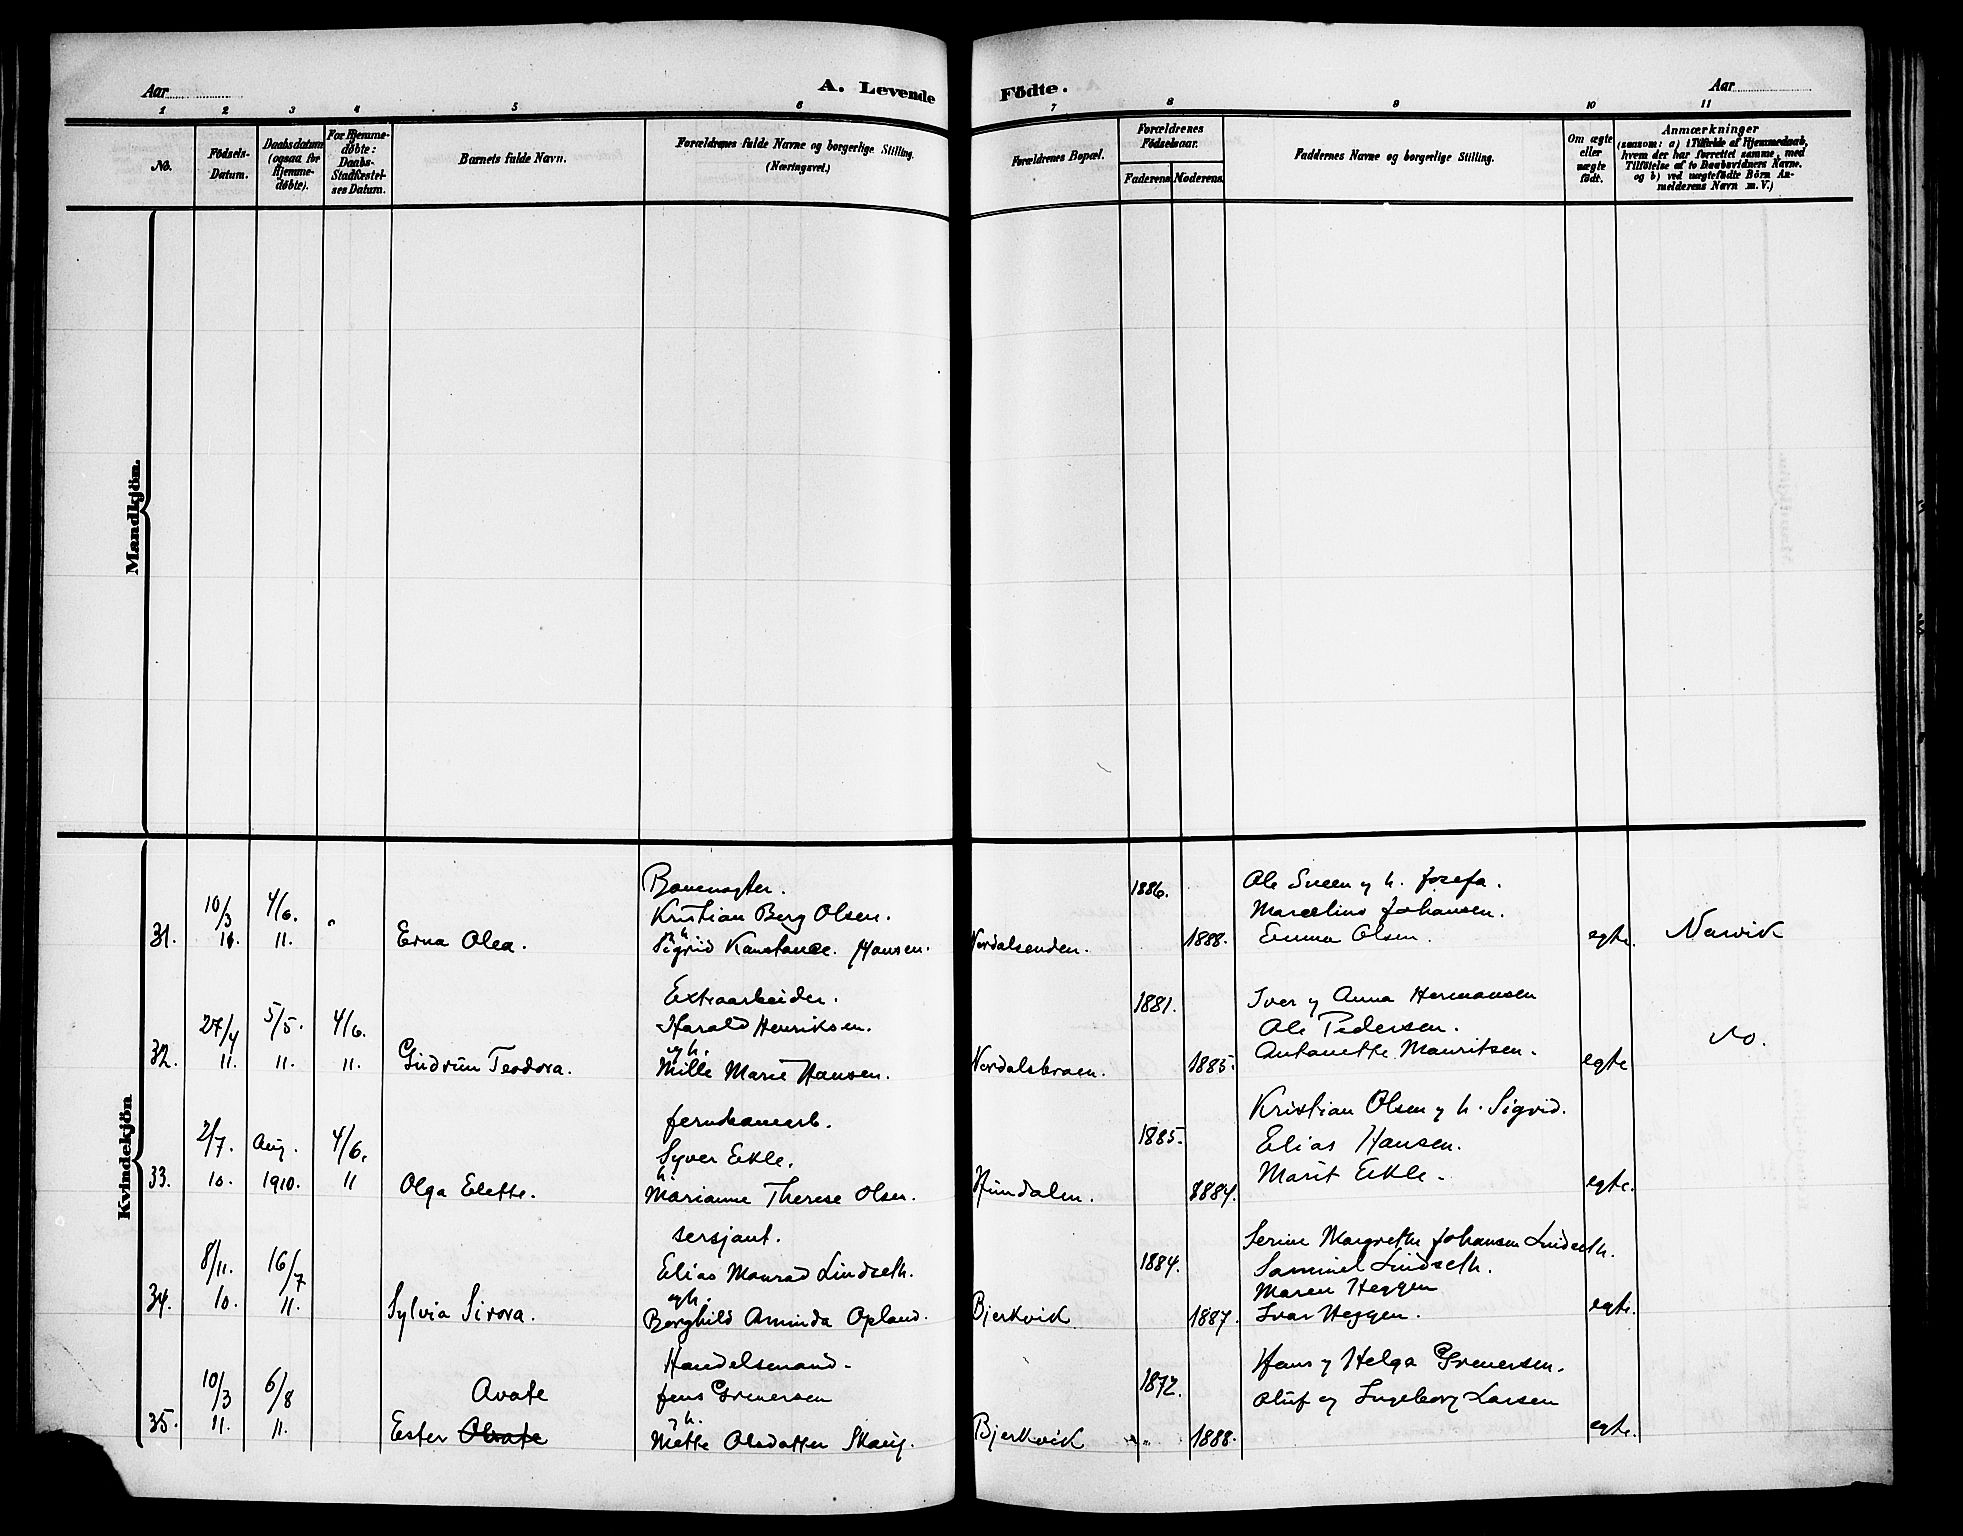 Aar
A. Levende
Födte.
Aar
1 2 3 4 5 6 7 8 9 10 11
No.
Födsels-
Datum.
Daabsdatum
(ogsaa for
Hjemme-
døbte).
For Hjemme-
døbte:
Daabs-
Stadfæstel-
ses Datum.
Barnets fulde Navn.
Forældrenes fulde Navne og borgerlige Stilling.
(Næringsvei.)
Forældrenes Bopæl.
Forældrenes
Fødselsaar.
Faderens. Moderens.
Faddernes Navne og borgerlige Stilling.
Om ægte
eller
uægte
født.
Anmærkninger
(saasom: a) i Tilfælde af Hjemmedaab,
hvem der har forrettet samme, med
Tilføielse af to Daabsvidners Navne.
og b) ved uægtefødte Börn An-
melderens Navn m. V.)
Mandkjön.
Kvindekjön
31.
10/3
11.
4/6.
11.
"
Erna Olea.
Banevogter.
Kristian Berg Olsen.
h
Sigrid Konstance. Hansen.
Nordalsenden.
1886.
1888.
Ole Sveen y h. Josefa.
Marcelius Johansen.
Emma Olsen.
egte.
Narvik
32.
27/4
11.
5/5.
11.
4/6.
11.
Gudrun Teodora.
Extraarbeider.
Harald Henriksen.
og h.
Mille Marie Hansen.
Nordalsbroen.
1881.
1885.
Iver y Anna Hermansen
Ole Pedersen.
Antonette Mauritsen.
egte
Do.
33.
2/7.
10.
Aug.
1910.
4/6.
11
Olga Elette.
Syver Ekle.
h.
Marianne Therese Olsen.
Hundalen.
1885.
1884.
Kristian Olsen y h. Sigrid.
Elias Hansen.
Marit Ekle.
egte.
34.
8/11.
10.
16/7
11.
Sylvia Sirora.
Sersjant.
Elias Monrad Lindseth.
og h.
Borghild Aminda Opland.
Bjerkvik
1884.
1887.
Serine Margrethe Johansen Lindseth.
Samuel Lindseth.
Maren Heggen
Ivar Heggen.
egte.
35.
10/3
11.
6/8
11.
Avate
Ester Olvate
Handelsmand.
Jens Grenersen
y h.
Mette Olsdatter Skaug.
Bjerkvik
1872.
1888.
Hans y Helga Grenersen.
Oluf og Ingeborg Larsen
egte.